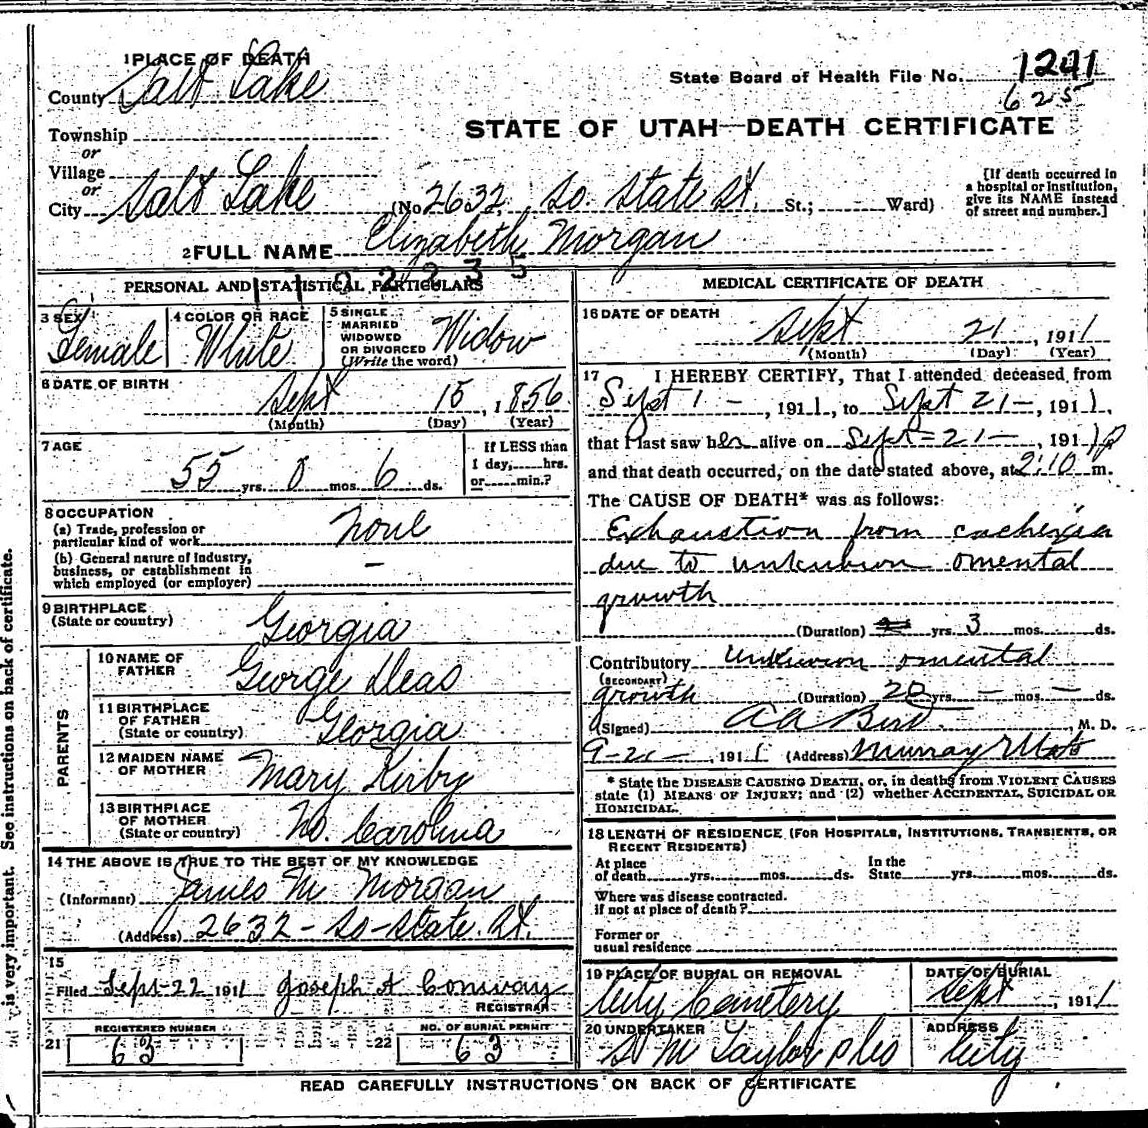 1 PLACE OF DEATH
County Salt Lake
State Board of Health File No. 1241
625
Township
or
Village
or
City Salt Lake (No 2632 So. State St. St.; Ward)
STATE OF UTAH—DEATH CERTIFICATE
[If death occurred in
a hospital or institution,
give its NAME instead
of street and number.]
2 FULL NAME Elizabeth Morgan
PERSONAL AND STATISTICAL PARTICULARS
3 SEX Female
4 COLOR OR RACE White
5 SINGLE
MARRIED
WIDOWED
OR DIVORCED
(Write the word) Widow
6 DATE OF BIRTH
Sept 15, 1856
(Month) (Day) (Year)
7 AGE
55 yrs. 0 mos. 6 ds.
If LESS than
1 day, hrs.
or min.?
8 OCCUPATION
(a) Trade, profession or
particular kind of work None
(b) General nature of industry,
business, or establishment in
which employed (or employer) –
9 BIRTHPLACE
(State or country) Georgia
PARENTS
10 NAME OF
FATHER George Deas
11 BIRTHPLACE
OF FATHER
(State or country) Georgia
12 MAIDEN NAME
OF MOTHER Mary Kirby
13 BIRTHPLACE
OF MOTHER
(State or country) No. Carolina
14 THE ABOVE IS TRUE TO THE BEST OF MY KNOWLEDGE
(Informant) James M Morgan
(Address) 2632 - So - State. St.
15
Filed Sept-22 1911 Joseph A Conway
REGISTRAR
REGISTERED NUMBER
21 63
NO. OF BURIAL PERMIT
22 63
MEDICAL CERTIFICATE OF DEATH
16 DATE OF DEATH
Sept 21, 1911
(Month) (Day) (Year)
17 I HEREBY CERTIFY, That I attended deceased from
Sept 1 -, 1911, to Sept 21 -, 1911,
that I last saw her alive on Sept - 21 -, 1911
and that death occurred, on the date stated above, at 2:10 P m.
The CAUSE OF DEATH* was as follows:
Exhaustion from cachexia
due to unknown omental
growth
(Duration) yrs. 3 mos. ds.
Contributory unknown omental
(SECONDARY)
growth (Duration) 20 yrs. – mos. – ds.
(Signed) A A Bird M. D.
9-21-, 1911 (Address) Murray Utah
* State the DISEASE CAUSING DEATH, or, in deaths from VIOLENT CAUSES
state (1) MEANS OF INJURY; and (2) whether ACCIDENTAL, SUICIDAL OR
HOMICIDAL.
18 LENGTH OF RESIDENCE (FOR HOSPITALS, INSTITUTIONS, TRANSIENTS, OR
RECENT RESIDENTS)
At place
of death yrs. mos. ds.
In the
State yrs. mos. ds.
Where was disease contracted.
if not at place of death?
Former or
usual residence
19 PLACE OF BURIAL OR REMOVAL
City Cemetery
DATE OF BURIAL
Sept, 1911
20 UNDERTAKER
S M Taylor
ADDRESS
City
READ CAREFULLY INSTRUCTIONS ON BACK OF CERTIFICATE
is very important. See instructions on back of certificate.